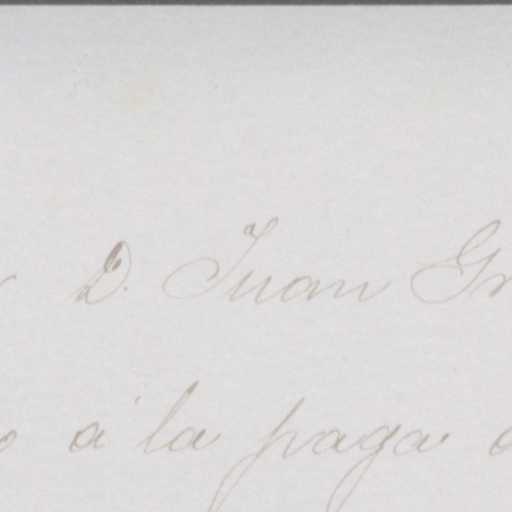 D. Juan
á la paga